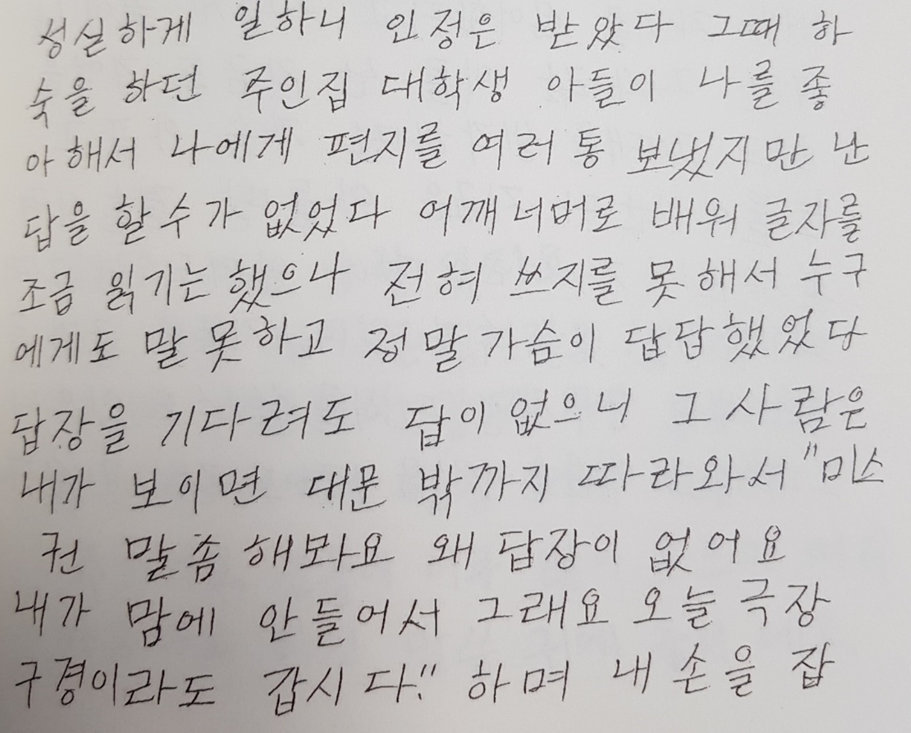 성실하게 일하니 인정은 받았다 그때 하
숙을 하던 주인집 대학생 아들이 나를 좋
아해서 나에게 편지를 여러 통 보냈지만 난
답을 할수가 없었다 어깨너머로 배워 글자를
조금 읽기는 했으나 전혀 쓰지를 못해서 누구
에게도 말 못하고 정말 가슴이 답답했었다
답장을 기다려도 답이 없으니 그 사람은
내가 보이면 대문 밖까지 따라와서 "미스
권 말좀 해봐요 왜 답장이 없어요
내가 맘에 안들어서 그래요 오늘 극장
구경이라도 갑시다." 하며 내 손을 잡